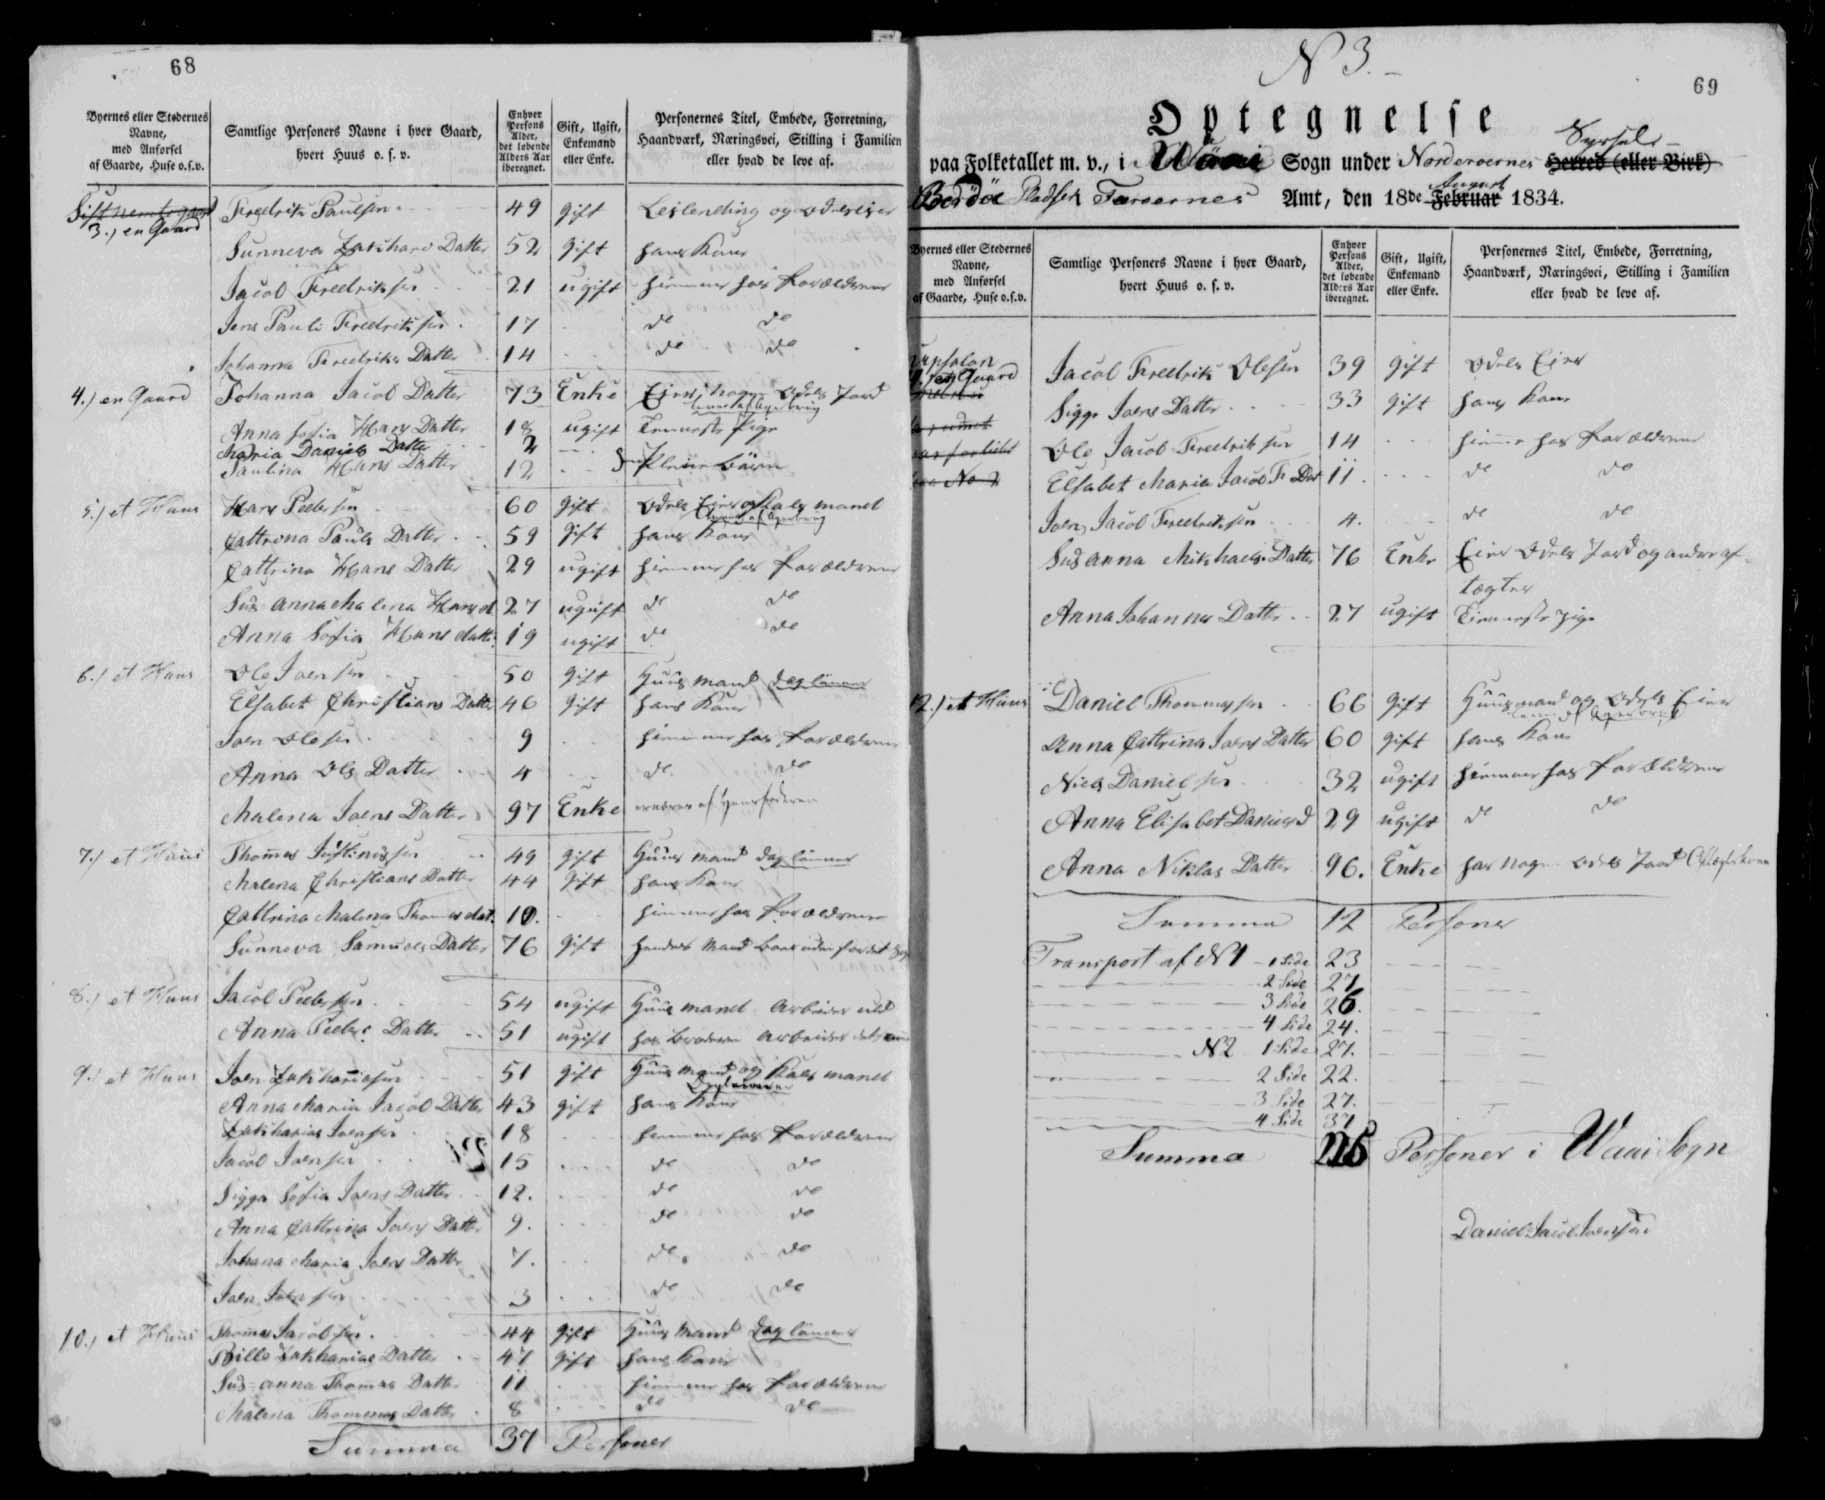 68
Byernes eller Stedernes Navne, med Anførsel af Gaarde, Huse o.s.v.
Samtlige Personers Navne i hver Gaard, hvert Huus o. s. v.
Enhver Persons Alder, det løbende Alders Aar iberegnet.
Gift, Ugift, Enkemand eller Enke.
Personernes Titel, Embede, Forretning, Haandværk, Næringsvei, Stilling i Familien eller hvad de leve af.
3.) en Gaard Fredrik Paulsen 49 gift Leilending og odelseier
Sunneva Zakhario Datter 52 gift hans Kone
Jacob Fredriksen 21 ugift hiemme hos Forældrene
Jens Pauli Fredriksen 17 do do
Johanna Fredriks Datter 14 do do
4.) en Gaard Johanna Jacob Datter 73 Enke Eier nogen Odels Jord
Anna Sofia Hans Datter 18 ugift Tieneste Pige
Maria Daniels Datter 2
Paulina Hans Datter 12 Pleie Børn
5.) et Huus Hans Pedersen 60 gift Odels Eier og Kals mand
Cattrona Pauls Datter 59 gift hans Kone
Cattrina Hans Datter 29 ugift hiemme hos Forældrene
Sus-anna Malena Hans d 27 ugift do do
Anna Sofia Hans datter 19 ugift do do
6.) et Huus Ole Joensen 50 gift Huus mand daglønner
Elsabet Christians Datter 46 gift hans Kone
Joen Olesen 9 hiemme hos Forældrene
Anna Ols Datter 4 do do
Malena Joens Datter 97 Enke
7.) et Huus Thomas Justinussen 49 gift Huus mand daglønner
Malena Christians Datter 44 gift hans Kone
Cattrina Malena Thomas dat. 10. hiemme hos Forældrene
Sunneva Samuels Datter 76 gift hendes Mand
8.) et Huus Jacob Pedersen 54 ugift Huus mand Arbeider uld
Anna Peders Datter 51 ugift hos Broderen Arbeider
9.) et Huus Joen Zakhariesen 51 gift Huus mand og Kals mand
Anna Maria Jacob Datter 43 gift hans Kone
Zakharias Joensen 18 hiemme hos Forældrene
Jacob Joensen 15 do do
Sigga Sofia Joens Datter 12. do do
Anna Cattrina Joens Datter 9. do do
Johana Maria Joens Datter 7. do do
Joen Joensen 3 do do
10.) et Huus Thomas Jacobsen 44 gift Huus Mand daglønner
Bille Zakharias Datter 47 gift hans Kone
Sus-anna Thomas Datter 11 hiemme hos Forældrene
Malena Thommas Datter 8 do do
Summa 37 Personer
N 3.
69
Optegnelse
paa Folketallet m. v., i Waai Sogn under Norderoernes Herred (eller Birk) Syssel
Bordöe Færoernes Amt, den 18de Februar August 1834.
Byernes eller Stedernes Navne, med Anførsel af Gaarde, Huse o.s.v.
Samtlige Personers Navne i hver Gaard, hvert Huus o. s. v.
Enhver Persons Alder, det løbende Alders Aar iberegnet.
Gift, Ugift, Enkemand eller Enke.
Personernes Titel, Embede, Forretning, Haandværk, Næringsvei, Stilling i Familien eller hvad de leve af.
Jacob Fredrik Olesen 39 gift Odels Eier
Sigge Joens Datter 33 gift hans Kone
Ole Jacob Fredriksen 14 hiemme hos Forældrene
Elsabet Maria Jacob Fr Dat 11. do do
Joen Jacob Fredriksen 4. do do
Susanna Mikhaels Datter 76 Enke Eier Odels Jord og andre af-
tægter
Anna Johannes Datter 27 ugift Tieneste pige
12.) et Huus Daniel Thommassen 66 gift Huusmand og Odels Eier
Anna Cattrina Joens Datter 60 gift hans Kone
Niels Danielsen 32 ugift hiemme hos Forældrene
Anna Elisabet Daniels d 29 ugift do do
Anna Niklas Datter 96. Enke har nogen Odels Jord
Summa 12 Personer
Transport af N1 1 Side 23
2 Side 27
3 Side 26.
4 Side 24.
N2 1 Side 27.
2 Side 22.
3 Side 27.
4 Side 37
Summa 225 Personer i Waai Sogn
Daniel Jacob Joensen